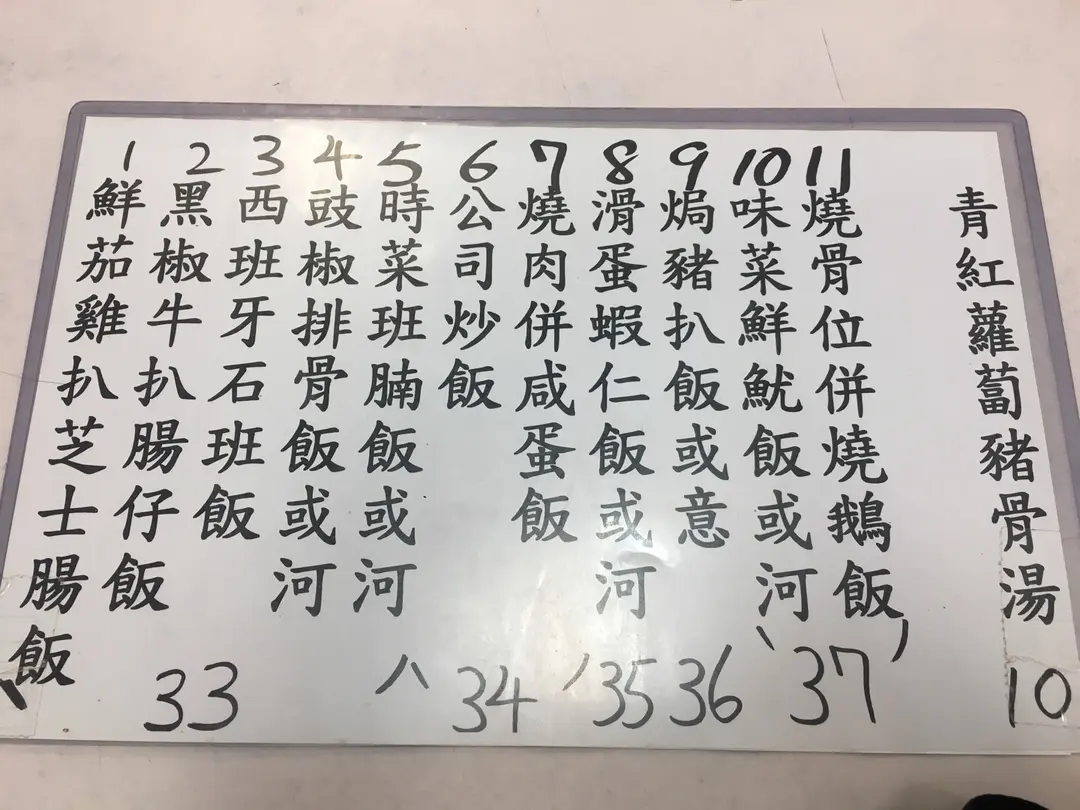 1 鮮茄雞扒芝士腸飯
2 黑椒牛扒腸仔飯
3 西班牙石班飯
4 豉椒排骨飯或河
5 時菜班腩飯或河
6 公司炒飯
7 燒肉併咸蛋飯
8 滑蛋蝦仁飯或河
9 焗豬扒飯或意
10 味菜鮮魷飯或河
11 燒骨位併燒鵝飯
青紅蘿蔔豬骨湯
33 34 35 36 37 10